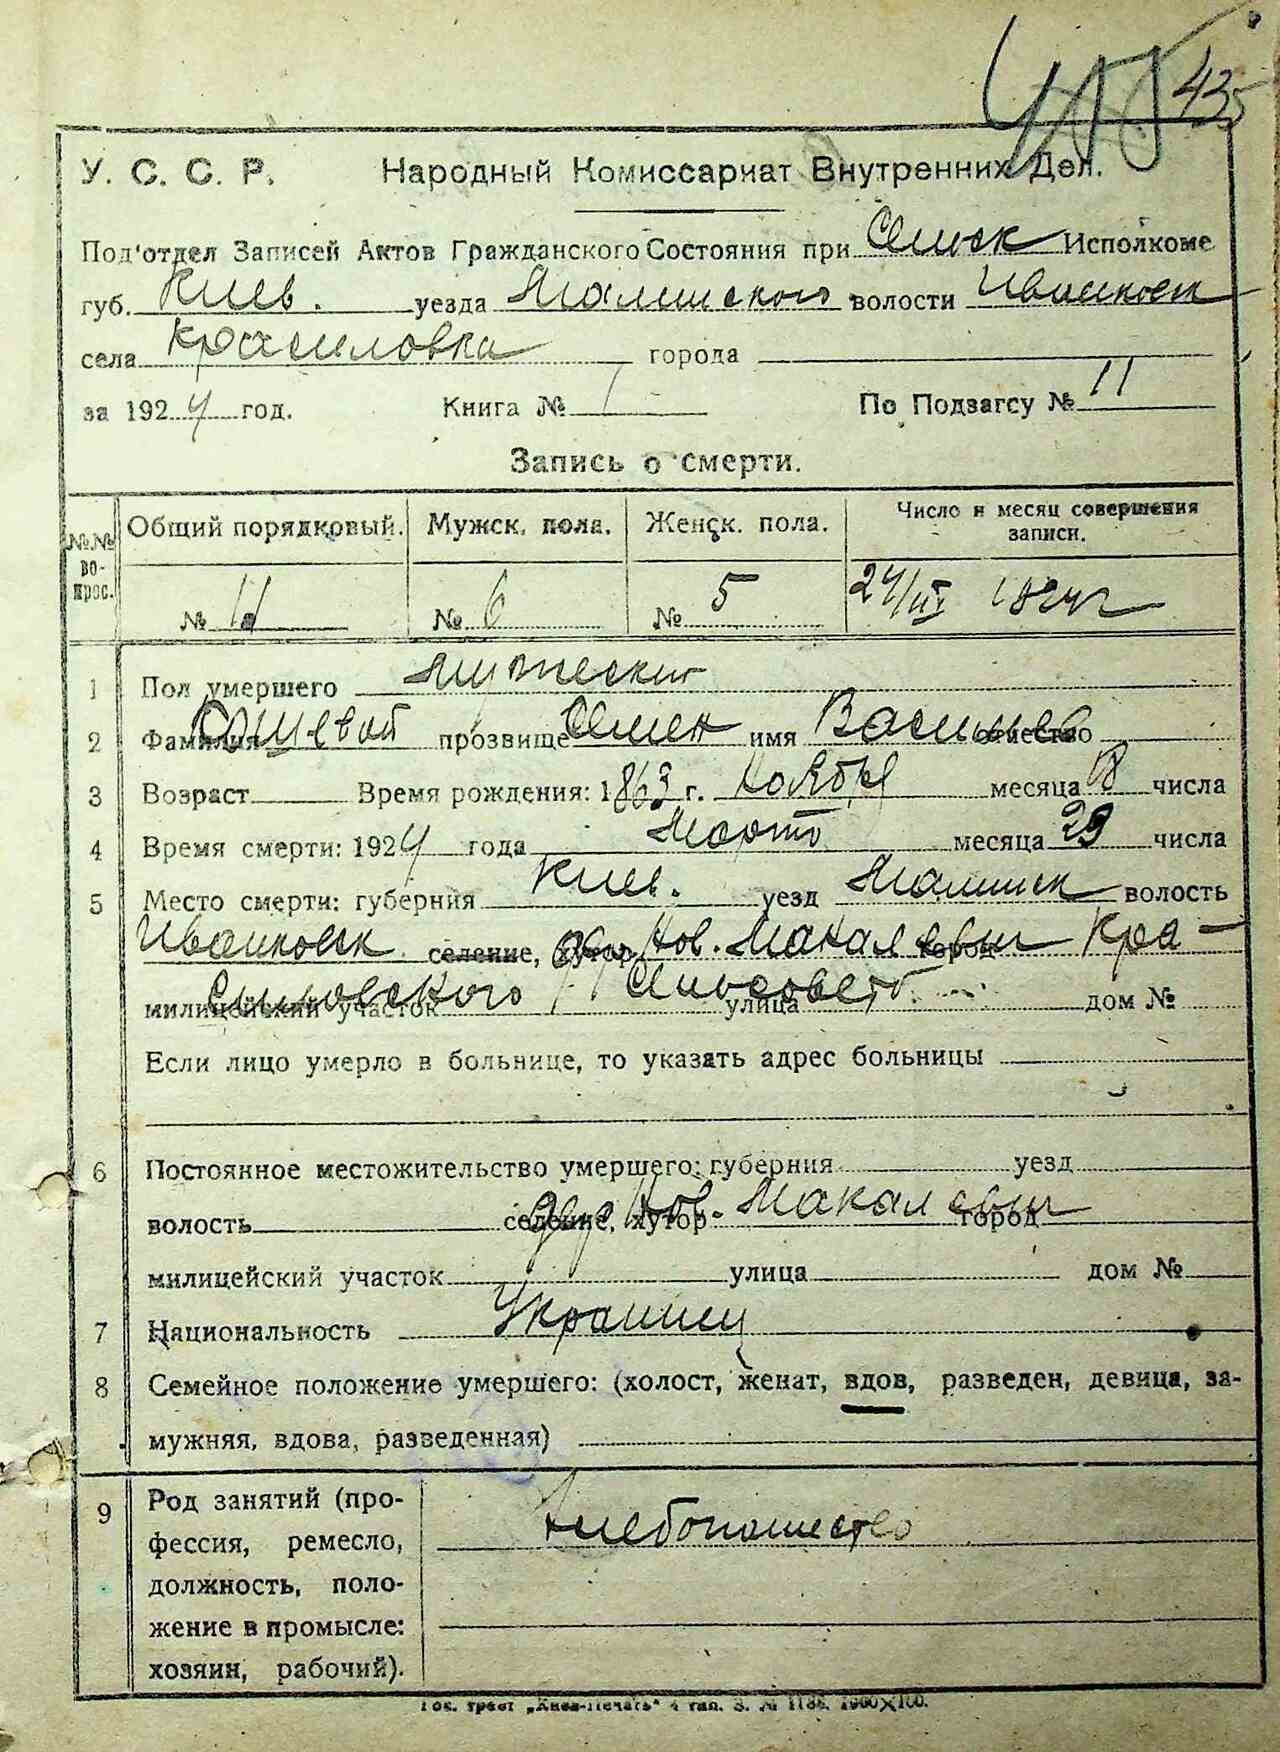 435
У. С. С. Р. Народный Комиссариат Внутренних Дел.
Под'отдел Записей Актов Гражданского Состояния при Сельск Исполкоме
губ. Киев. уезда Малинского волости Иванковск
села Красиловка города
за 1924 год. Книга № 1 По Подзагсу № 11
Запись о смерти.
№№ вопрос. Общий порядковый. Мужск. пола. Женск. пола. Число и месяц совершения
записи.
№ 11 № 6 № 5 1924 г
1 Пол умершего Мужеский
2 Фамилия Кошевой прозвище Семен имя Васильев отчество
3 Возраст Время рождения: 1863 г. Ноября месяца 18 числа
4 Время смерти: 1924 года Марта месяца 23 числа
5 Место смерти: губерния Киев. уезд Малинск волость
Иванковск селение, хутор Нов. Макалевич город Кра-
силовского милицейский участок Сельсовета улица дом №
Если лицо умерло в больнице, то указать адрес больницы
6 Постоянное местожительство умершего: губерния уезд
волость селение, хутор дер Нов. Макалевич город
милицейский участок улица дом №
7 Национальность Украинец
8 Семейное положение умершего: (холост, женат, вдов, разведен, девица, за-
мужняя, вдова, разведенная)
9 Род занятий (про-
фессия, ремесло, Хлебопашество
должность, поло-
жение в промысле:
хозяин, рабочий).
Гос. трест „Киев-Печать" 4 тип. З. № 1138. 1900×100.